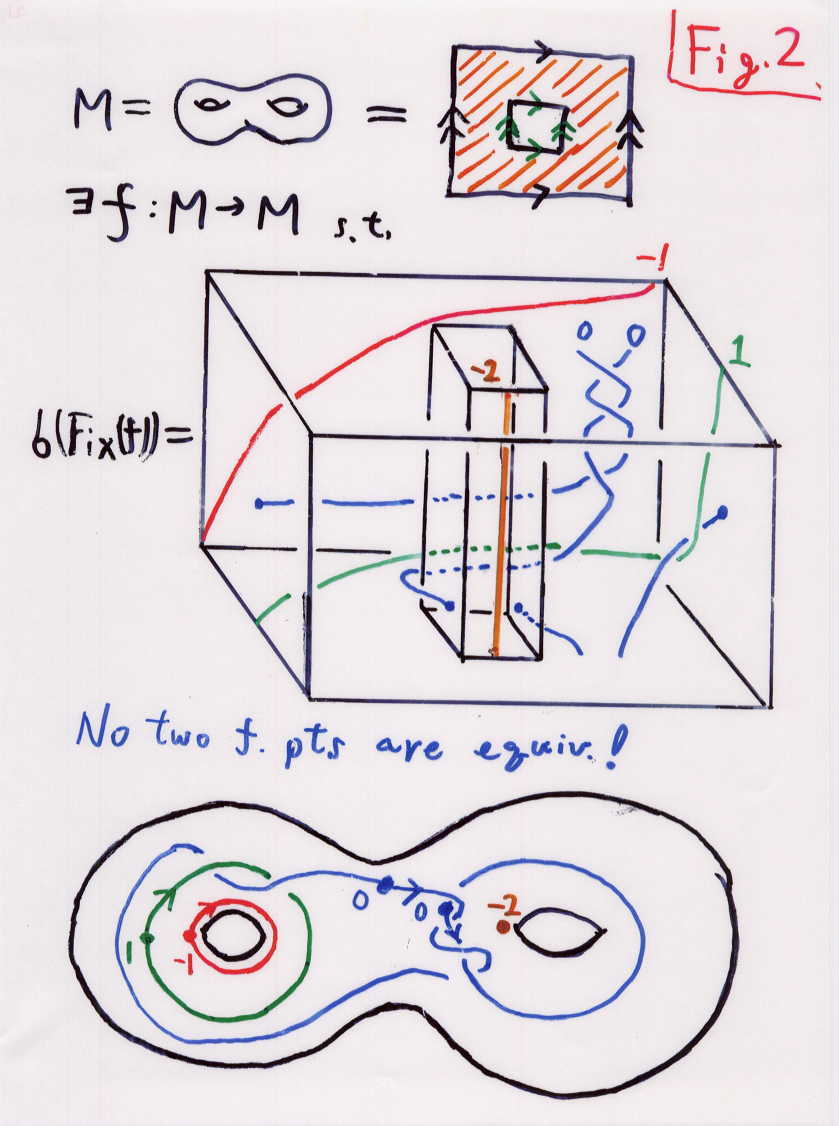 Fig. 2
M = =
∃f : M → M s.t.
-1
0 0
1
-2
b(Fix(f)) =
No two f. pts are equiv.!
0
0
-2
1
-1